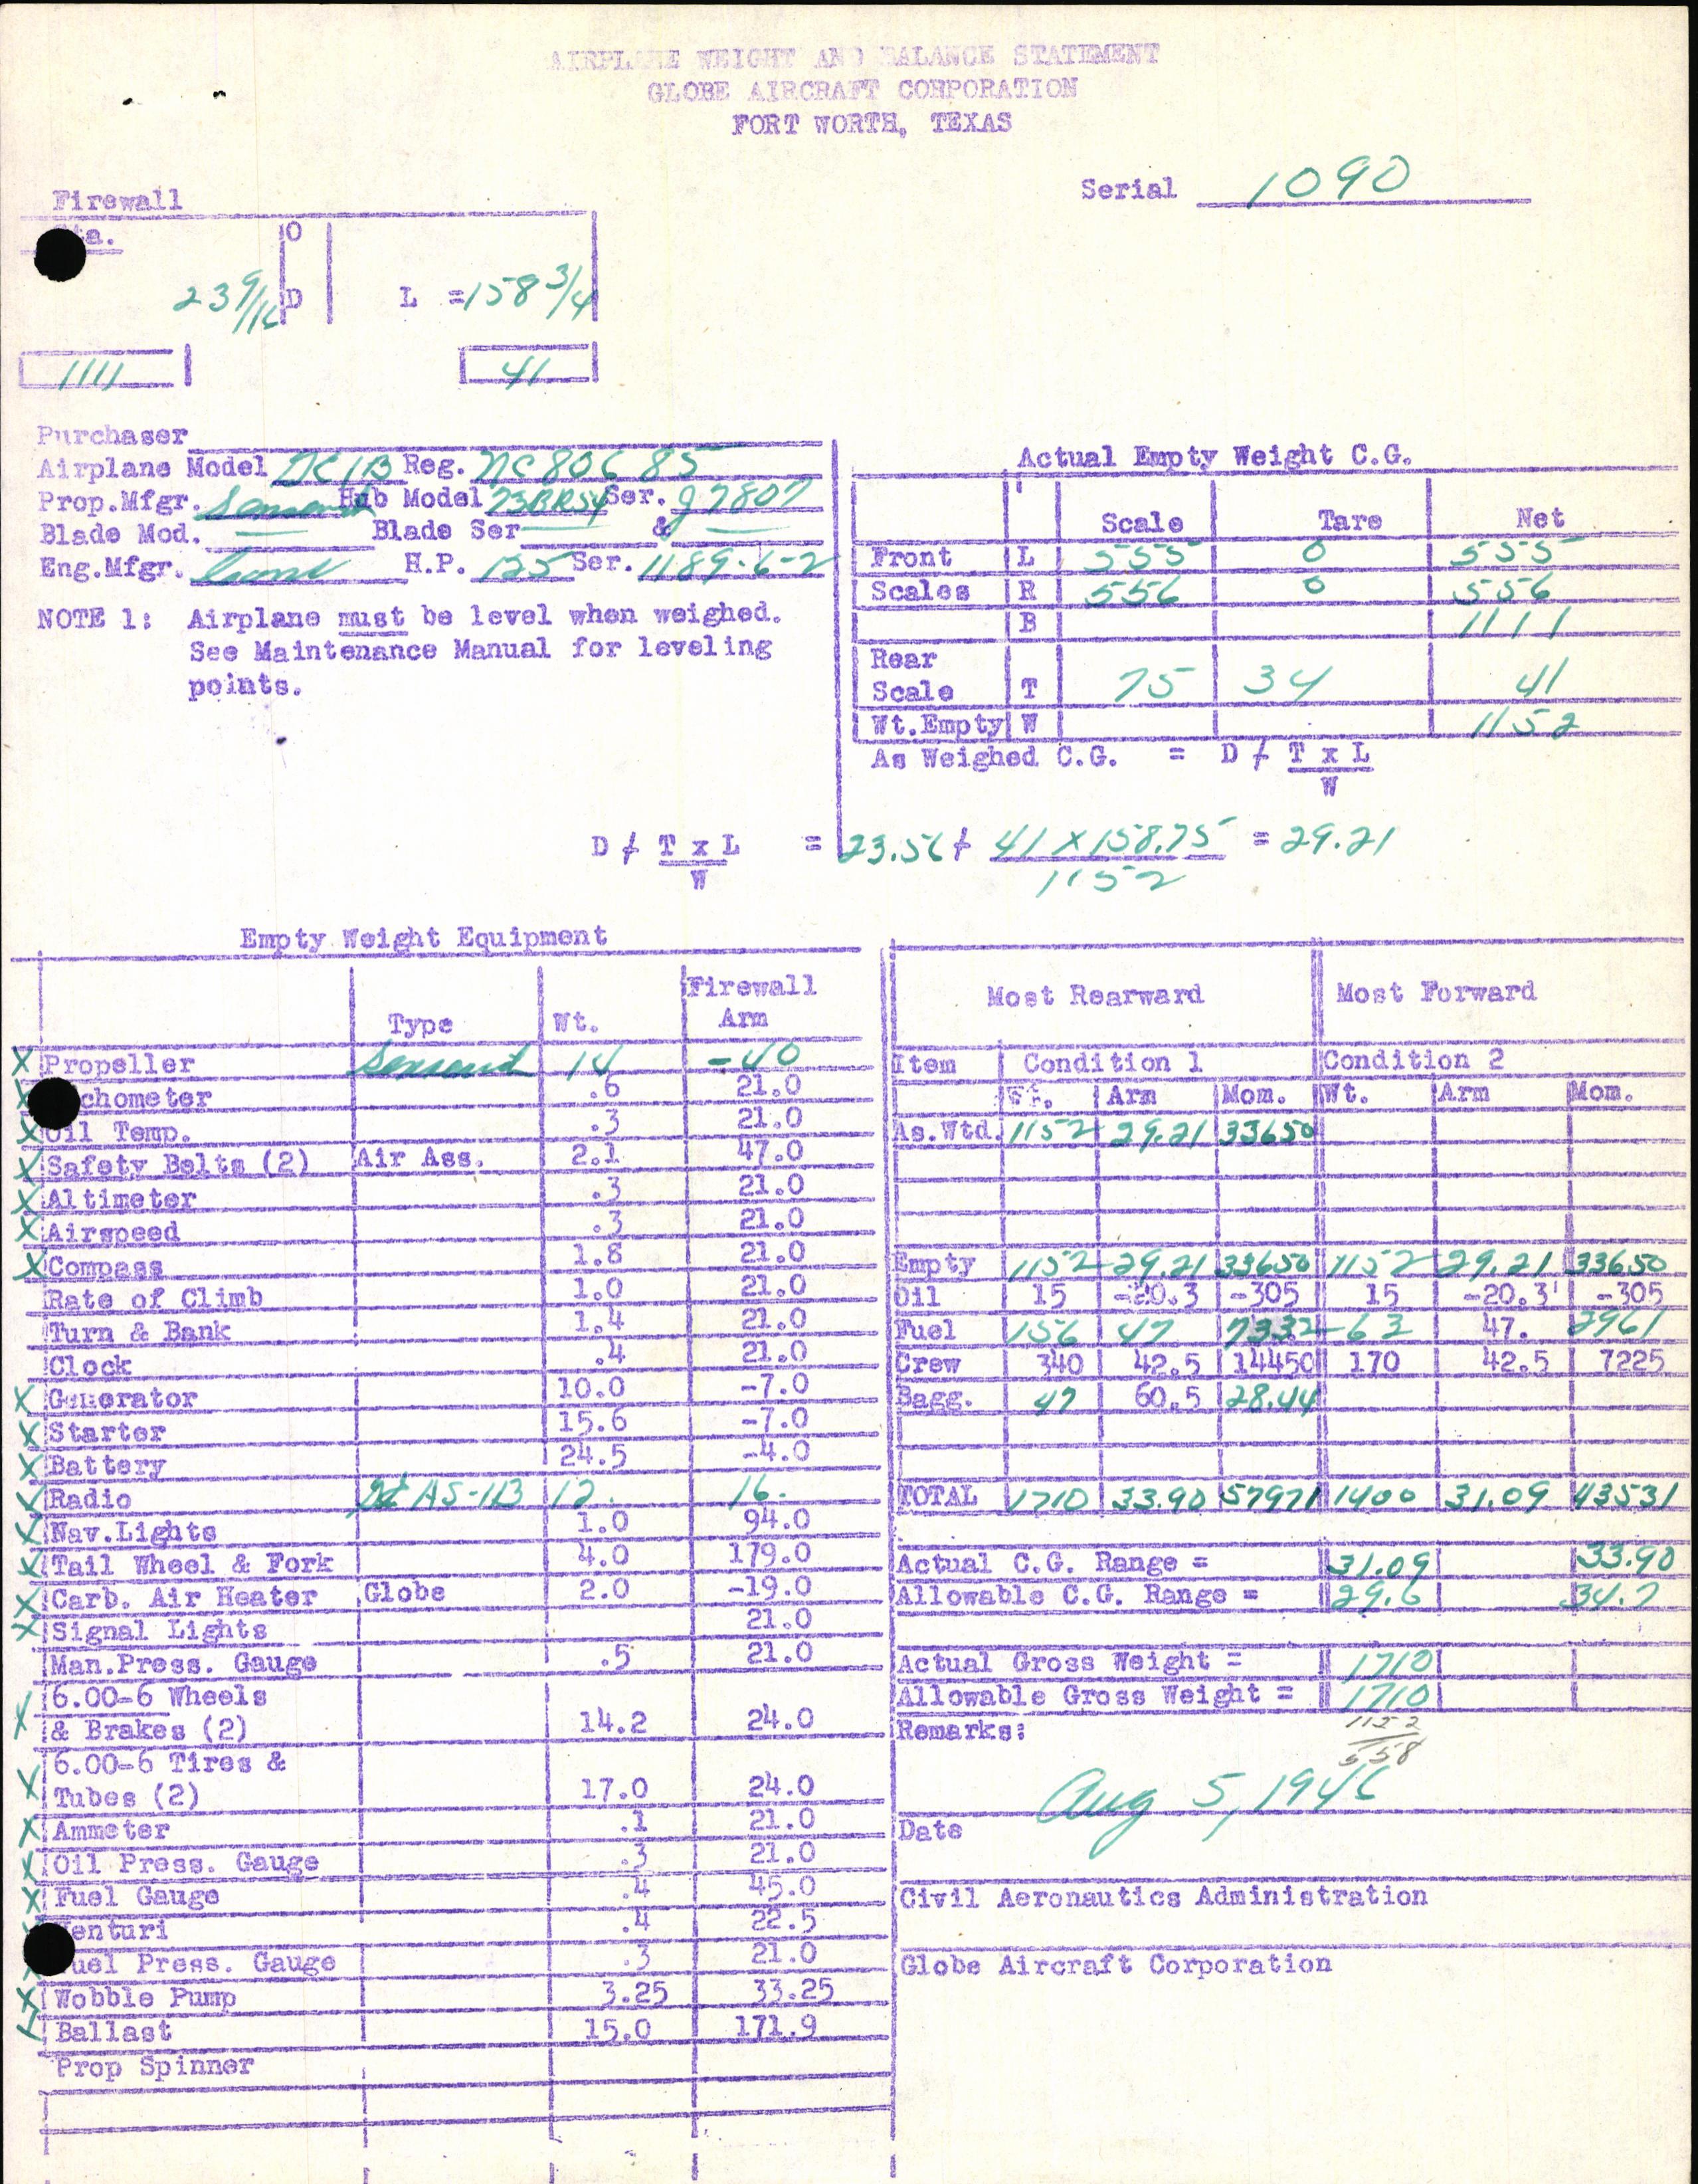 AIRPLANE WEIGHT AND BALANCE STATEMENT
GLOBE AIRCRAFT CORPORATION
FORT WORTH, TEXAS
Serial 1090
Firewall
Sta. O
23 9/16 D L = 158 3/4
1111 41
Purchaser
Airplane Model GC1B Reg. NC 80685
Prop.Mfgr. Hub Model 73BR54 Ser. J7807
Blade Mod. — Blade Ser — & —
Eng.Mfgr. Cont H.P. 125 Ser. 1189-6-2
NOTE 1: Airplane must be level when weighed.
See Maintenance Manual for leveling
points.
Actual Empty Weight C.G.
Scale Tare Net
Front L 555 0 555
Scales R 556 0 556
B 1111
Rear
Scale T 75 34 41
Wt.Empty W 1152
As Weighed C.G. = D + T x L
W
D + T x L = 23.56 + 41 X 158.75 = 29.21
W 1152
Empty Weight Equipment
Type Wt. Firewall Arm
X Propeller 14 -40
Tachometer .6 21.0
X Oil Temp. .3 21.0
X Safety Belts (2) Air Ass. 2.1 47.0
X Altimeter .3 21.0
X Airspeed .3 21.0
X Compass 1.8 21.0
Rate of Climb 1.0 21.0
Turn & Bank 1.4 21.0
Clock .4 21.0
X Generator 10.0 -7.0
X Starter 15.6 -7.0
X Battery 24.5 -4.0
X Radio AS-1B 12. 16.
X Nav.Lights 1.0 94.0
X Tail Wheel & Fork 4.0 179.0
X Carb. Air Heater Globe 2.0 -19.0
X Signal Lights 21.0
Man.Press. Gauge .5 21.0
X 6.00-6 Wheels
& Brakes (2) 14.2 24.0
X 6.00-6 Tires &
Tubes (2) 17.0 24.0
X Ammeter .1 21.0
X Oil Press. Gauge .3 21.0
X Fuel Gauge .4 45.0
Venturi .4 22.5
Fuel Press. Gauge .3 21.0
X Wobble Pump 3.25 33.25
X Ballast 15.0 171.9
Prop Spinner
Most Rearward Most Forward
Item Condition 1 Condition 2
Wt. Arm Mom. Wt. Arm Mom.
As.Wtd. 1152 29.21 33650
Empty 1152 29.21 33650 1152 29.21 33650
Oil 15 -20.3 -305 15 -20.3 -305
Fuel 156 47 7332 63 47. 2961
Crew 340 42.5 14450 170 42.5 7225
Bagg. 47 60.5 28.44
TOTAL 1710 33.90 57971 1400 31.09 43531
Actual C.G. Range = 31.09 33.90
Allowable C.G. Range = 29.6 34.7
Actual Gross Weight = 1710
Allowable Gross Weight = 1710
Remarks: 1152
558
Aug 5, 1946
Date
Civil Aeronautics Administration
Globe Aircraft Corporation